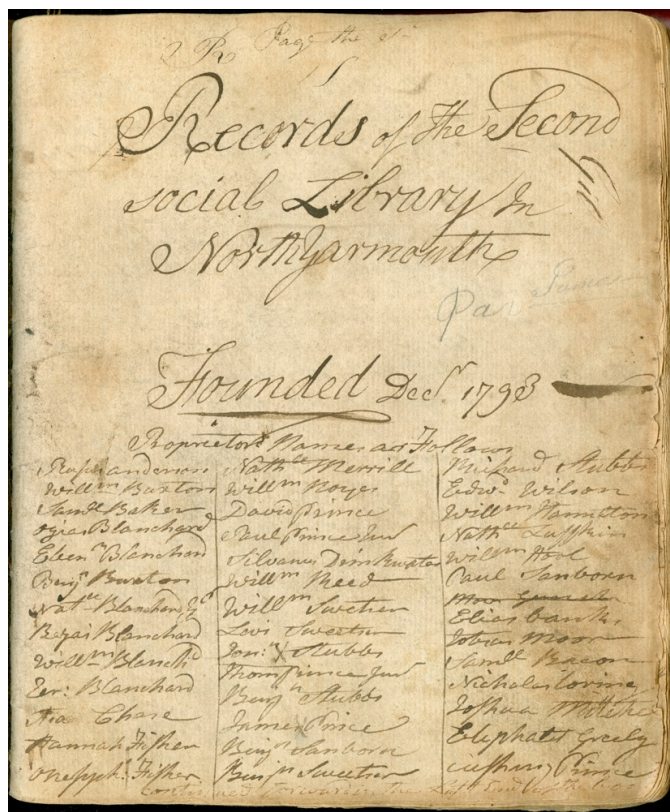 Page the
Records of the Second
social Library In
North Yarmouth
Founded Decr 1793
Proprietors Names as Follow
anderson
Willm Buxton
Saml Baker
Ozias Blanchard
Eben Blanchard
Benj Buxton
Nat Blanchard
Blanchard
Willm Blanch
Blanchard
Asa Chase
Hannah Fisher
Fisher
Nathl Merrill
Willm Noyes
David Prince
Paul Prince Jur
Silvanus Drinkwater
Willm Reed
Willm Sweetser
Levi Sweetser
Jon: Stubbs
Prince Jur
Benjn Stubbs
James Prince
Benjn Sanborn
Benjn Sweetser
Richard Stubbs
Edwd Wilson
Willm Hamilton
Nathl Luffkin
Willm
Paul Sanborn
Elias banks
Tobias Moor
Saml Bacon
Nicholas Loring
Joshua Mitchel
Eliphalet Greely
Cushing Prince
Continued